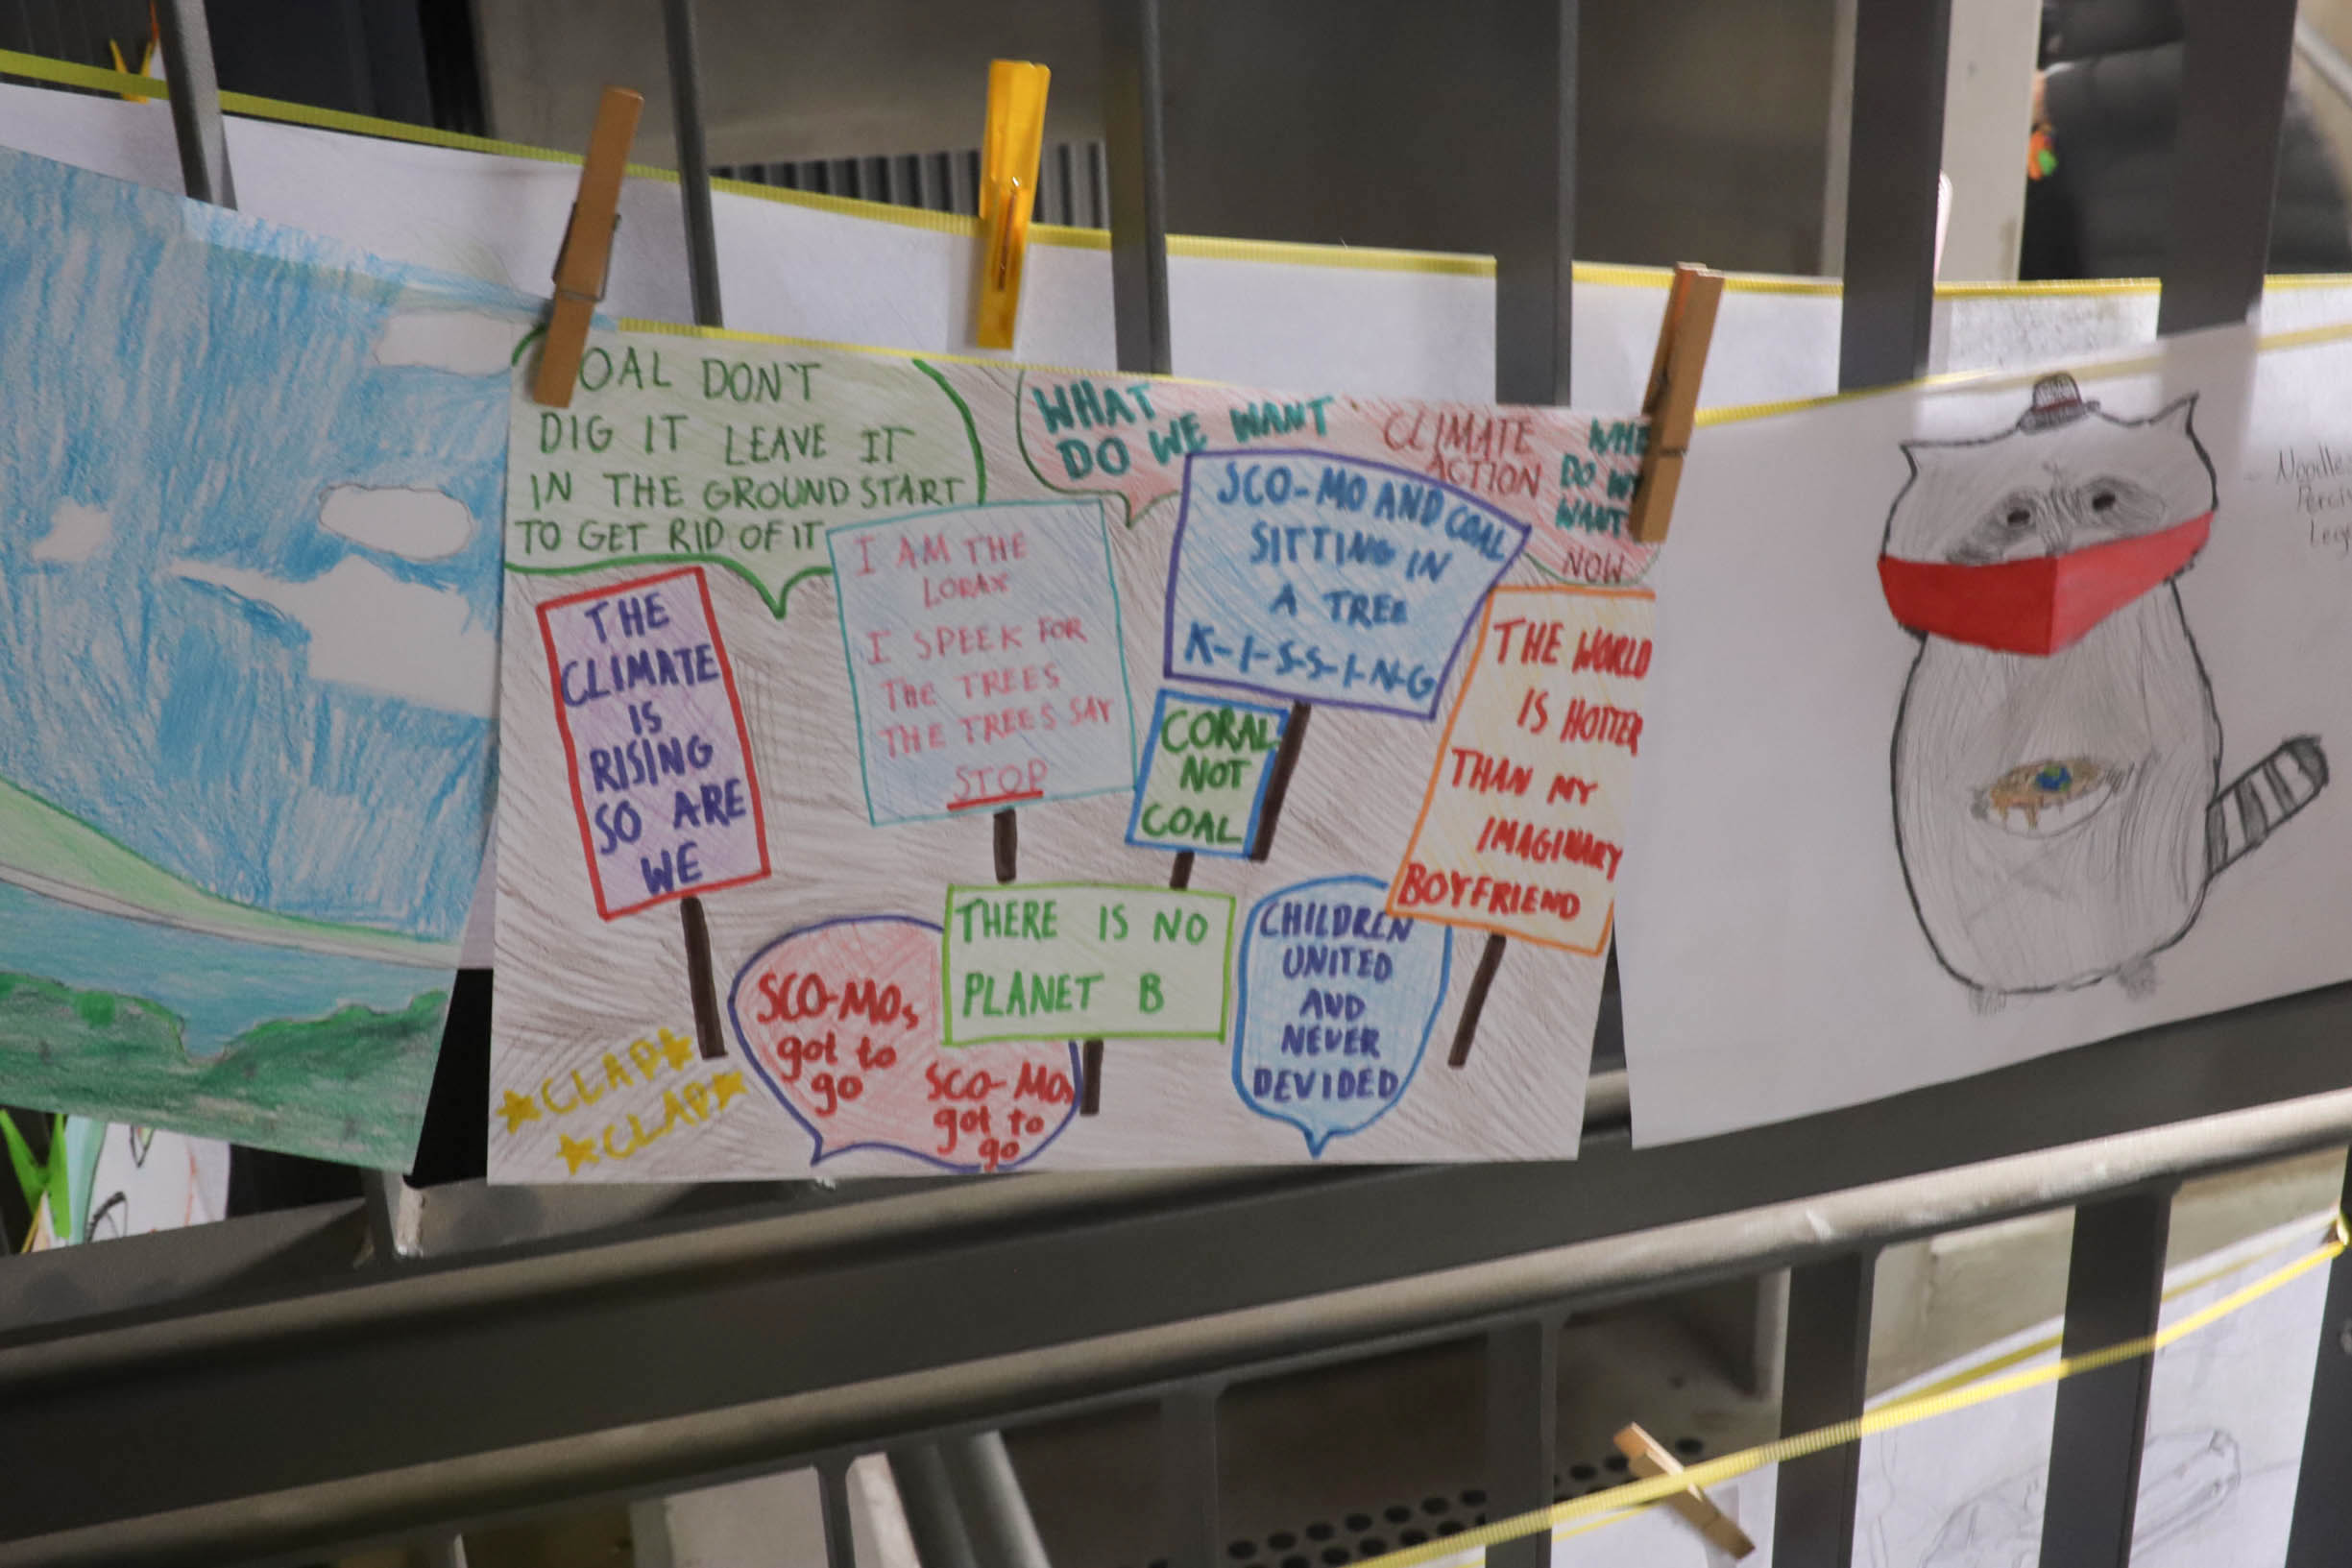 OAL DON'T
DIG IT LEAVE IT
IN THE GROUND START
TO GET RID OF IT
WHAT
DO WE WANT
CLIMATE
ACTION
WHE
DO WE
WANT
NOW
THE
CLIMATE
IS
RISING
SO ARE
WE
I AM THE
LORAX
I SPEEK FOR
THE TREES
THE TREES SAY
STOP
SCO-MO AND COAL
SITTING IN
A TREE
K-I-S-S-I-N-G
CORAL
NOT
COAL
THE WORLD
IS HOTTER
THAN MY
IMAGINARY
BOYFRIEND
THERE IS NO
PLANET B
CHILDREN
UNITED
AND
NEVER
DEVIDED
SCO-MOs
got to
go
SCO-MOs
got to
go
CLAP
CLAP
Noodle